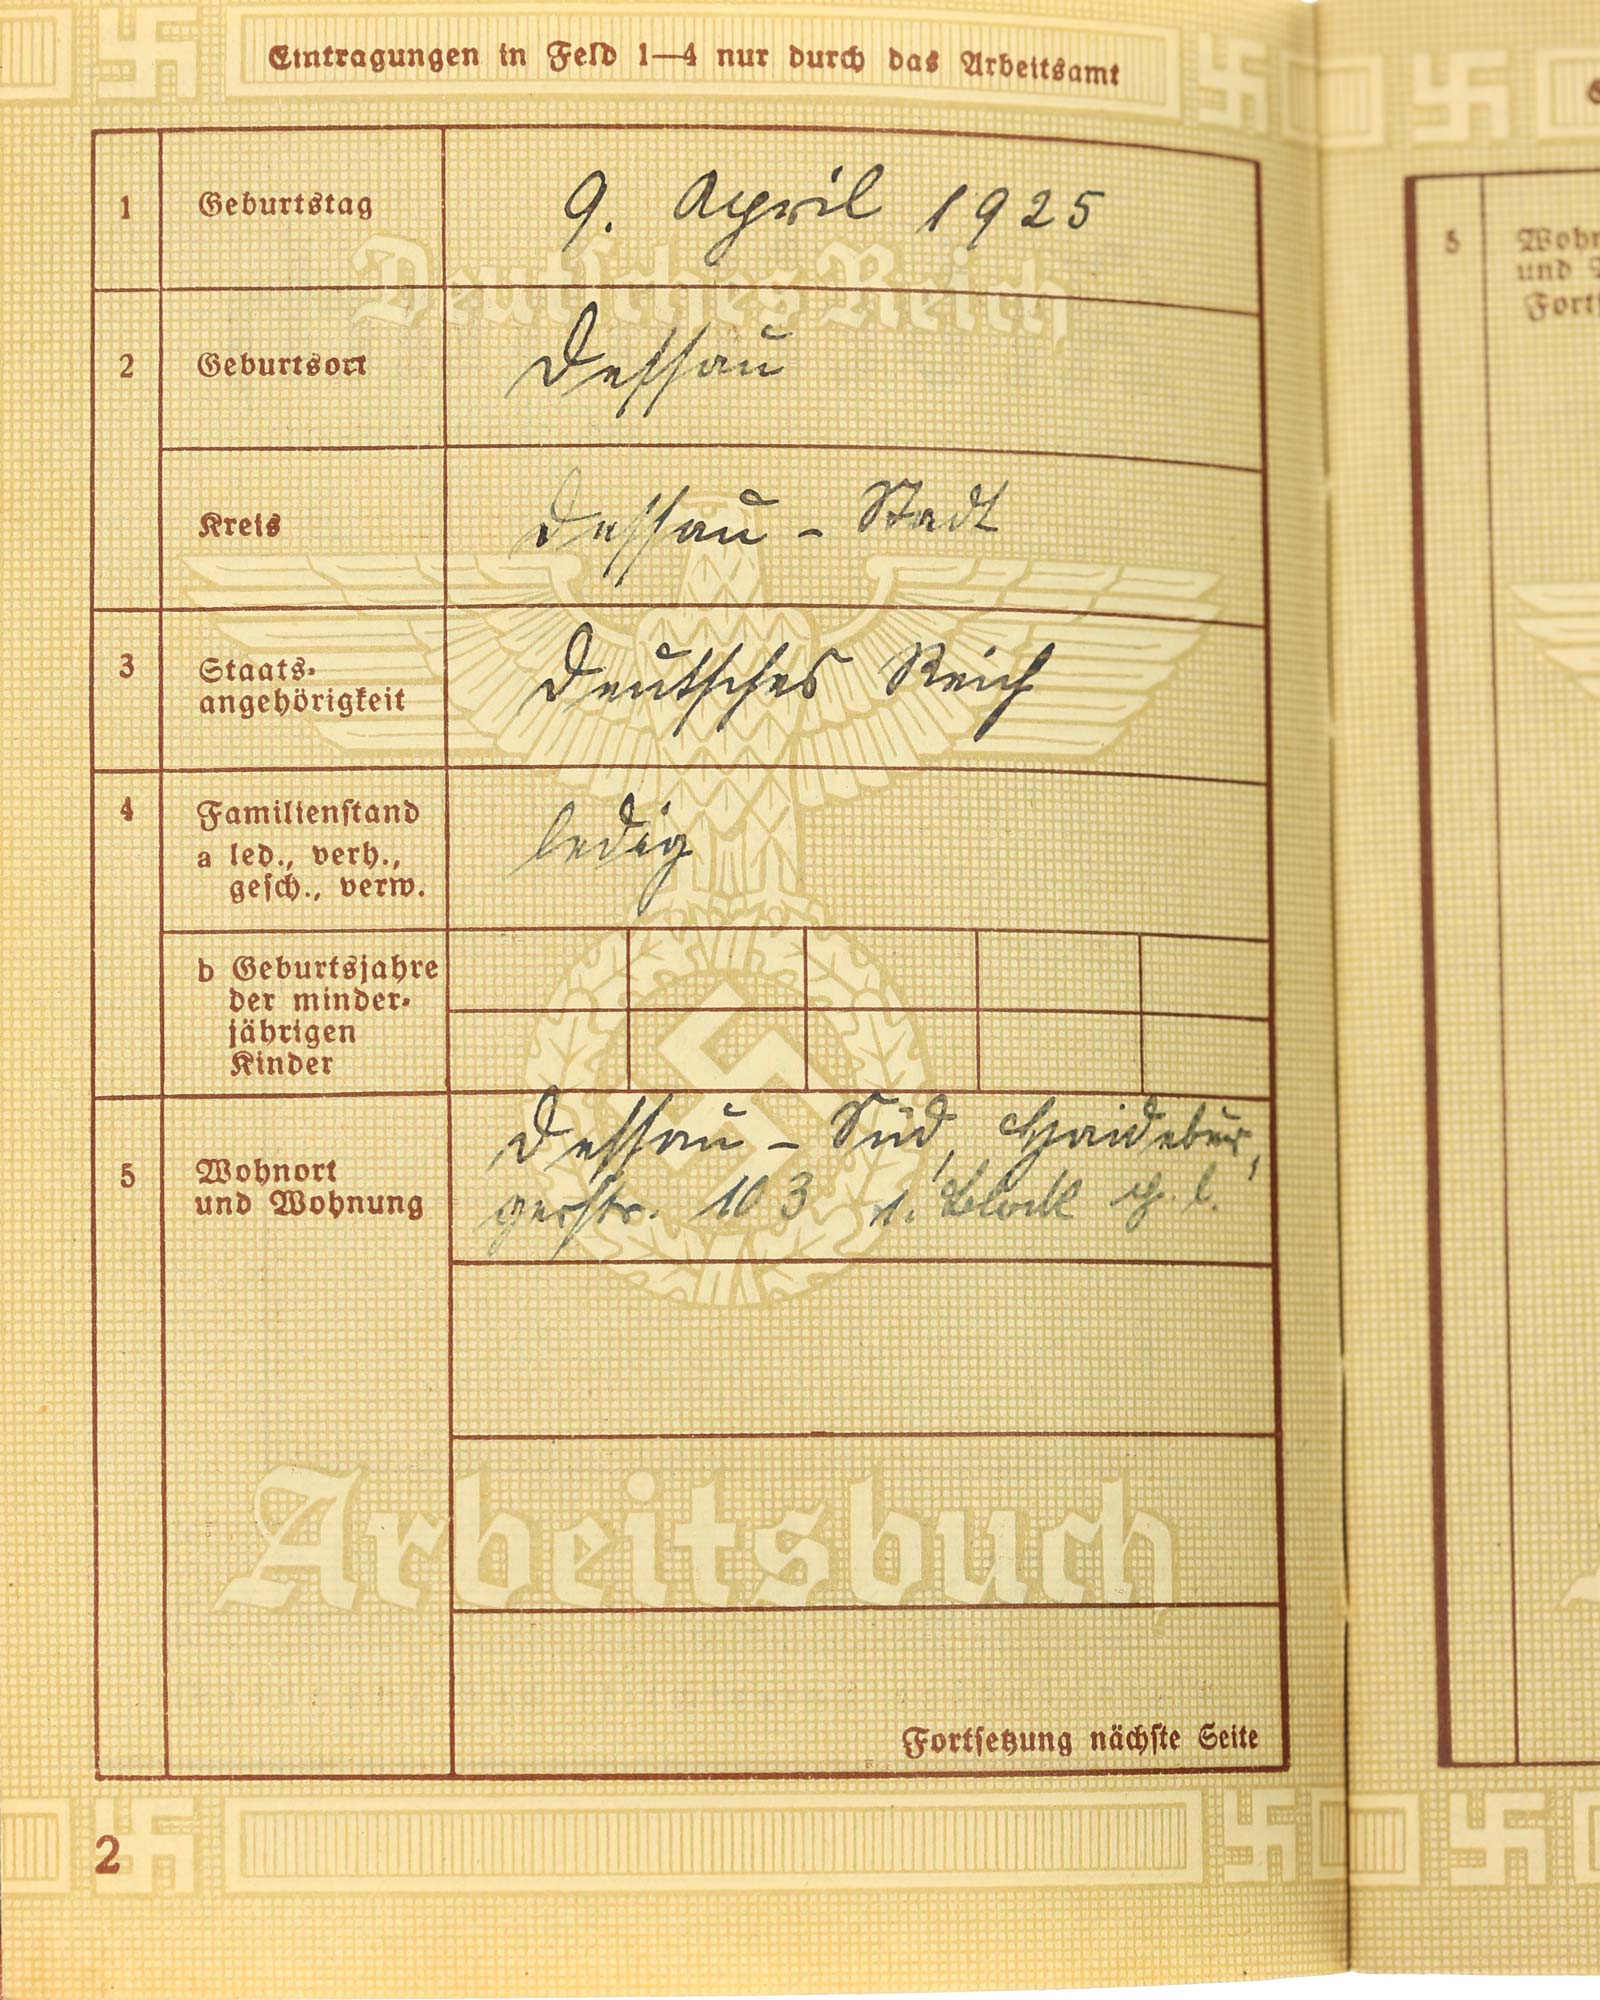 Eintragungen in Feld 1—4 nur durch das Arbeitsamt
1 Geburtstag 9. April 1925
Deutsches Reich
2 Geburtsort Dessau
Kreis Dessau - Stadt
3 Staats-
angehörigkeit Deutsches Reich
4 Familienstand
a led., verh.,
gesch., verw. ledig
b Geburtsjahre
der minder-
jährigen
Kinder
5 Wohnort
und Wohnung
Dessau - Süd, Haidebur,
gerstr. 103 1. Block
Arbeitsbuch
Fortsetzung nächste Seite
2
5
und